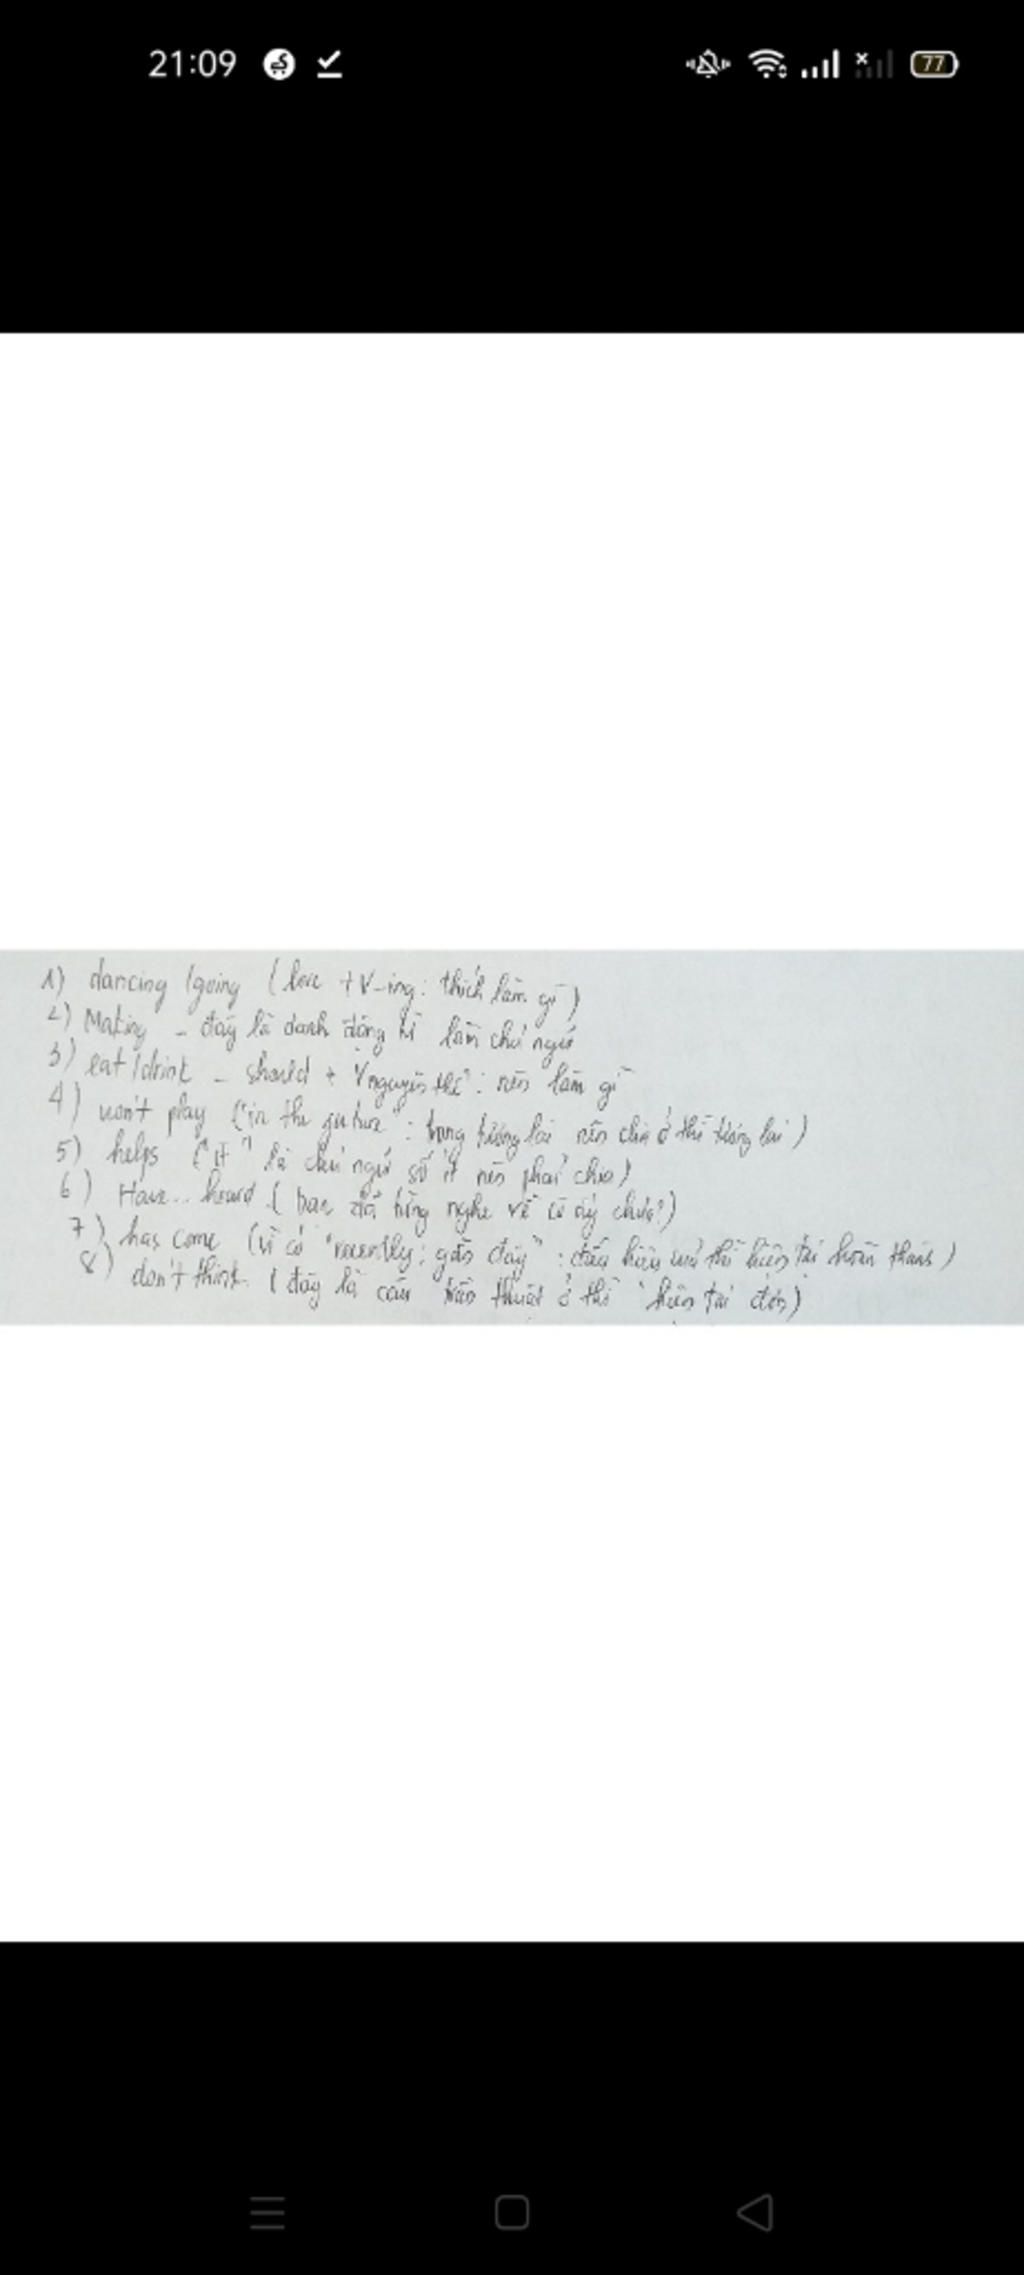 21:09
77
1) dancing / going ( love + V-ing: thích làm gì )
2) Making - đây là danh động từ làm chủ ngữ
3) eat / drink - should + V nguyên thể : nên làm gì
4) won't play ("in the guture" : trong tương lai nên chia ở thì tương lai )
5) helps ("it" là chủ ngữ số ít nên phải chia)
6) Have... heard ( bạn đã từng nghe về cô ấy chưa?)
7) has come (vì có "recently: gần đây" : dấu hiệu thì hiện tại hoàn thành )
8) don't think. ( đây là câu trần thuật ở thì hiện tại đơn)